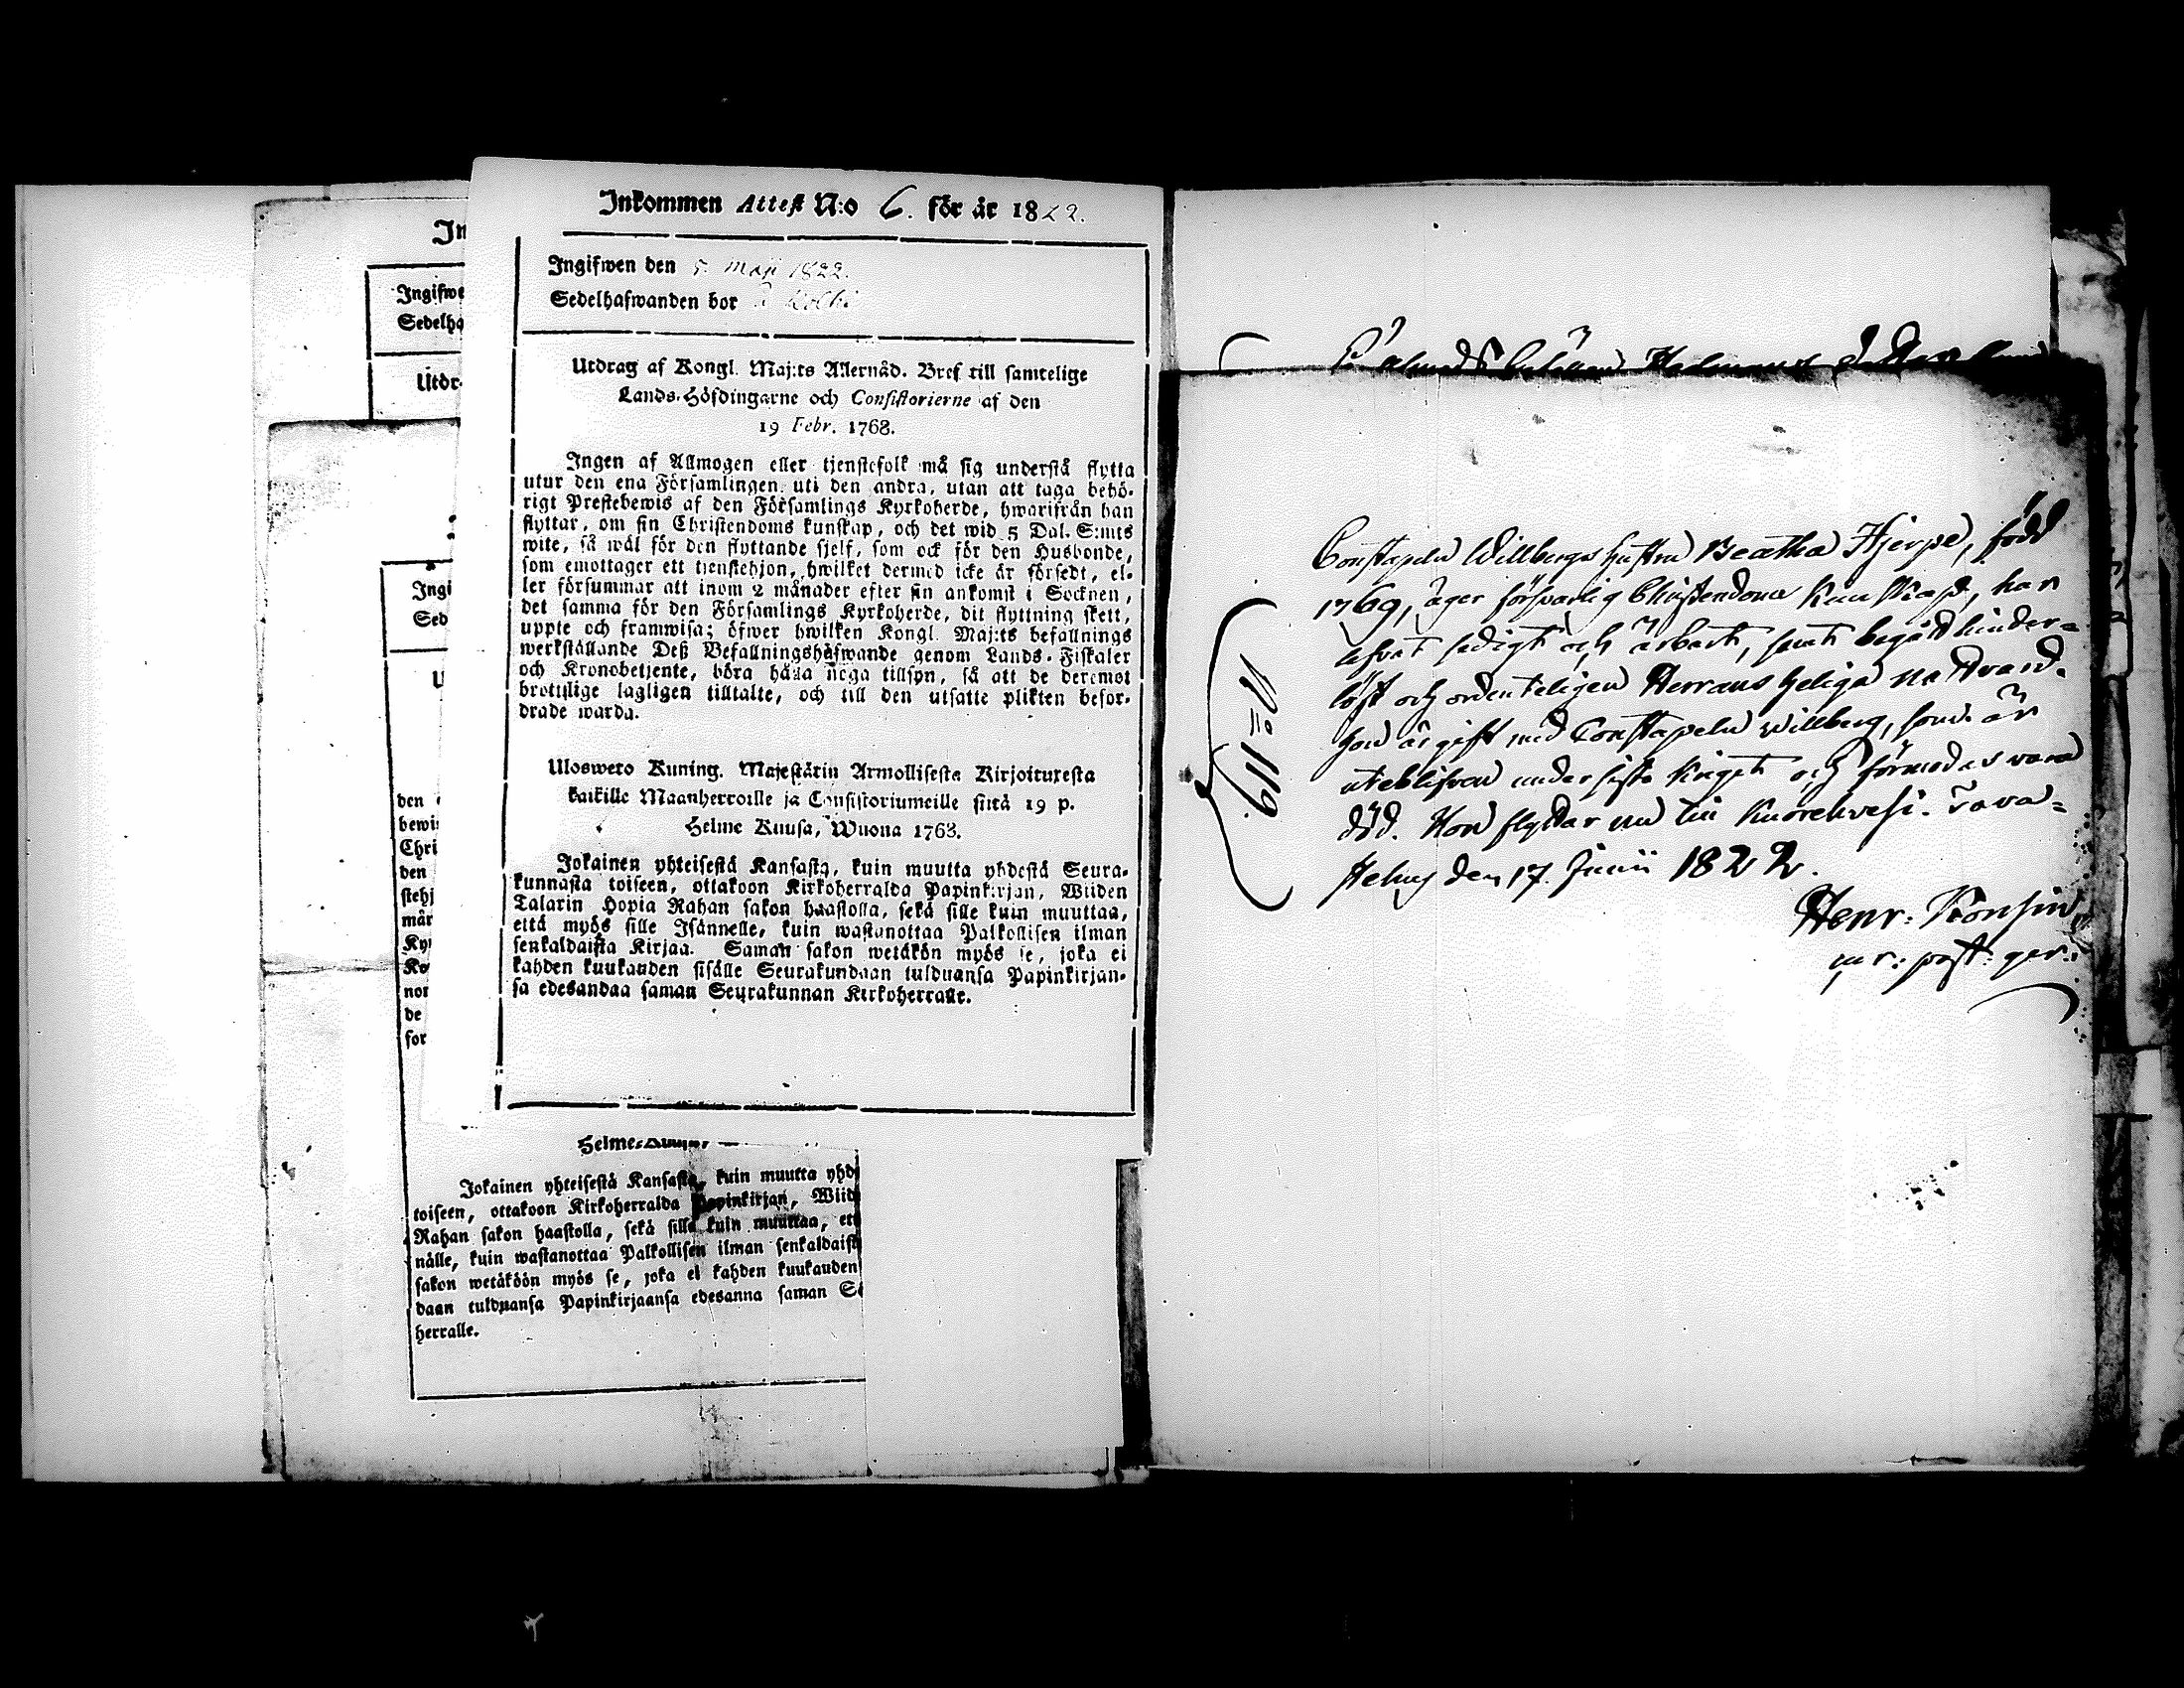 In
Ingifwe
Sedelha
Utdr
Ingi
Sed
U
den
bewis
Chri
den
stehj
mån
Ky
Ko
nor
de
for
Inkommen Attest N:o 6. för år 1822.
Ingifwen den 5. Maji 1822.
Sedelhafwanden bor
Utdrag af Kongl. Maj:ts Allernåd. Bref till samtelige
Lands-Höfdingarne och Consistorierne af den
19 Febr. 1768.
Ingen af Allmogen eller tjenstefolk må sig understå flytta
utur den ena Församlingen uti den andra, utan att taga behö-
rigt Prestebewis af den Församlings Kyrkoherde, hwarifrån han
flyttar, om sin Christendoms kunskap, och det wid 5 Dal. S:mts
wite, så wäl för den flyttande sjelf, som ock för den Husbonde,
som emottager ett tjenstehjon, hwilket dermed icke är försedt, el-
ler försummar att inom 2 månader efter sin ankomst i Socknen,
det samma för den Församlings Kyrkoherde, dit flyttning skett,
uppte och framwisa; öfwer hwilken Kongl. Maj:ts befallnings
werkställande Deß Befallningshafwande genom Lands-Fiskaler
och Kronobetjente, böra hålla noga tillsyn, så att de deremot
brottslige lagligen tilltalte, och till den utsatte plikten befor-
drade warda.
Ulosweto Kuning. Majestätin Armollisesta Kirjoituxesta
kaikille Maanherroille ja Consistoriumeille siitä 19 p.
Helme Kuusa, Wuona 1763.
Jokainen yhteisestä Kansasta, kuin muutta yhdestä Seura-
kunnasta toiseen, ottakoon Kirkoherralda Papinkirjan, Wiiden
Talarin Hopia Rahan sakon haastolla, sekä sille kuin muuttaa,
että myös sille Isännelle, kuin wastanottaa Palkollisen ilman
senkaldaista Kirjaa. Saman sakon wetäkön myös se, joka ei
kahden kuukauden sisälle Seurakundaan tulduansa Papinkirjan-
sa edesandaa saman Seurakunnan Kirkoherralle.
Helme
Jokainen yhteisestä Kansasta, kuin muutta yhd
toiseen, ottakoon Kirkoherralda Papinkirjan, Wiid
Rahan sakon haastolla, sekä sille kuin muuttaa, ett
nälle, kuin wastanottaa Palkollisen ilman senkaldaist
sakon wetäköön myös se, joka ei kahden kuukauden
daan tulduansa Papinkirjaansa edesanna saman Se
herralle.
N:o 119.
Constapeln Willbergs hustru Beatha Hjerpe, född
1769, äger försvarlig Christendoms Kunskap, har
lefvat sedigt och ärbart, samt begått hinder=
löst och ordenteligen Herrans heliga Nattvard.
Hon är gift med Constapeln Willberg, som är
uteblifven under sista kriget och förmodas vara
död. Hon flyttar nu till Kuorehvesi. Tava=
stehus den 17. Junii 1822.
Henr: